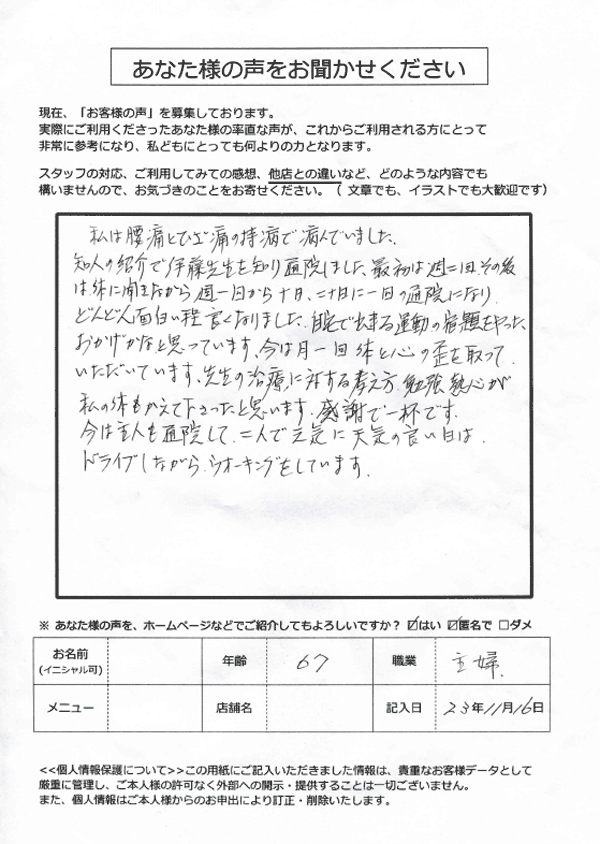 あなた様の声をお聞かせください
現在、「お客様の声」を募集しております。
実際にご利用くださったあなた様の率直な声が、これからご利用される方にとって
非常に参考になり、私どもにとっても何よりの力となります。
スタッフの対応、ご利用してみての感想、他店との違いなど、どのような内容でも
構いませんので、お気づきのことをお寄せください。（ 文章でも、イラストでも大歓迎です）
私は腰痛とひざ痛の持病で病んでいました、
知人の紹介で伊藤先生を知り通院しました、最初は週二回、その後
は体に聞きながら週一回から十日、二十日に一回の通院になり、
どんどん面白い程良くなりました、自宅で出来る運動の宿題をやった、
おかげかなと思っています、今は月一回体と心の歪を取って、
いただいています、先生の治療に対する考え方、勉強熱心が
私の体もかえて下さったと思います、感謝で一杯です、
今は主人も通院して、二人で元気に天気の良い日は、
ドライブしながら、ウオーキングをしています、
※ あなた様の声を、ホームページなどでご紹介してもよろしいですか？ ☑はい ☑匿名で □ダメ
お名前 年齢 67 職業 主婦、
(イニシャル可)
メニュー 店舗名 記入日 23年11月16日
<<個人情報保護について>>この用紙にご記入いただきました情報は、貴重なお客様データとして
厳重に管理し、ご本人様の許可なく外部への開示・提供することは一切ございません。
また、個人情報はご本人様からのお申出により訂正・削除いたします。